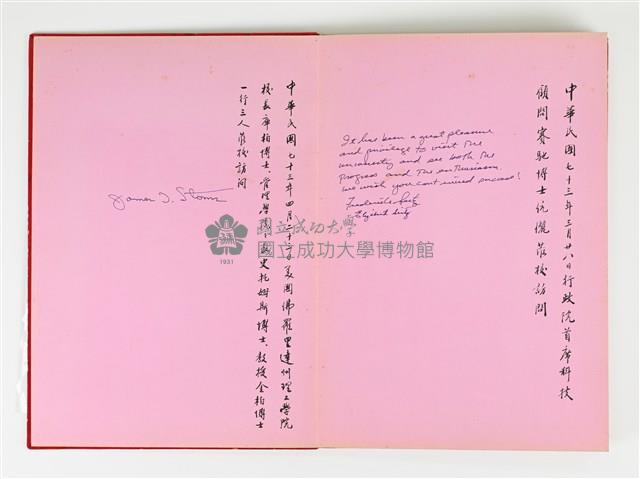 中華民國七十三年三月廿八日行政院首席科技
顧問賽馳博士伉儷蒞校訪問
It has been a great pleasure
and privilege to visit the
university and see both the
progress and the enthusiasm.
We wish you continued success!
Frederick Seitz
Elizabeth Seitz
中華民國七十三年四月二十日美國佛羅里達州理工學院
校長席柏博士、管理學院史托姆斯博士、教授金柏博士
一行三人蒞校訪問
James
國立成功大學
國立成功大學博物館
1931